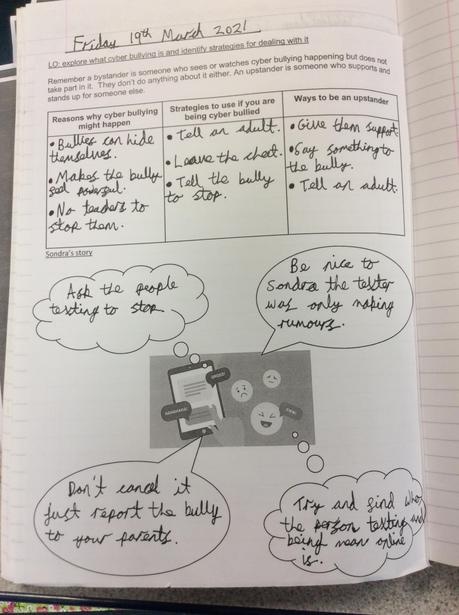 Friday 19th March 2021
LO: explore what cyber bullying is and identify strategies for dealing with it
Remember a bystander is someone who sees or watches cyber bullying happening but does not
take part in it. They don't do anything about it either. An upstander is someone who supports and
stands up for someone else.
Reasons why cyber bullying
might happen
• Bullies can hide
themselves.
• Makes the bully
feel powerful.
• No teachers to
stop them.
Strategies to use if you are
being cyber bullied
• Tell an adult.
• Leave the chat.
• Tell the bully
to stop.
Ways to be an upstander
• Give them support
• Say something to
the bully.
• Tell an adult.
Sondra's story
Ask the people
texting to stop
Be nice to
Sondra the texter
was only making
rumours.
Don't cancel it
just report the bully
to your parents.
Try and find who
the person texting and
being mean online
is.